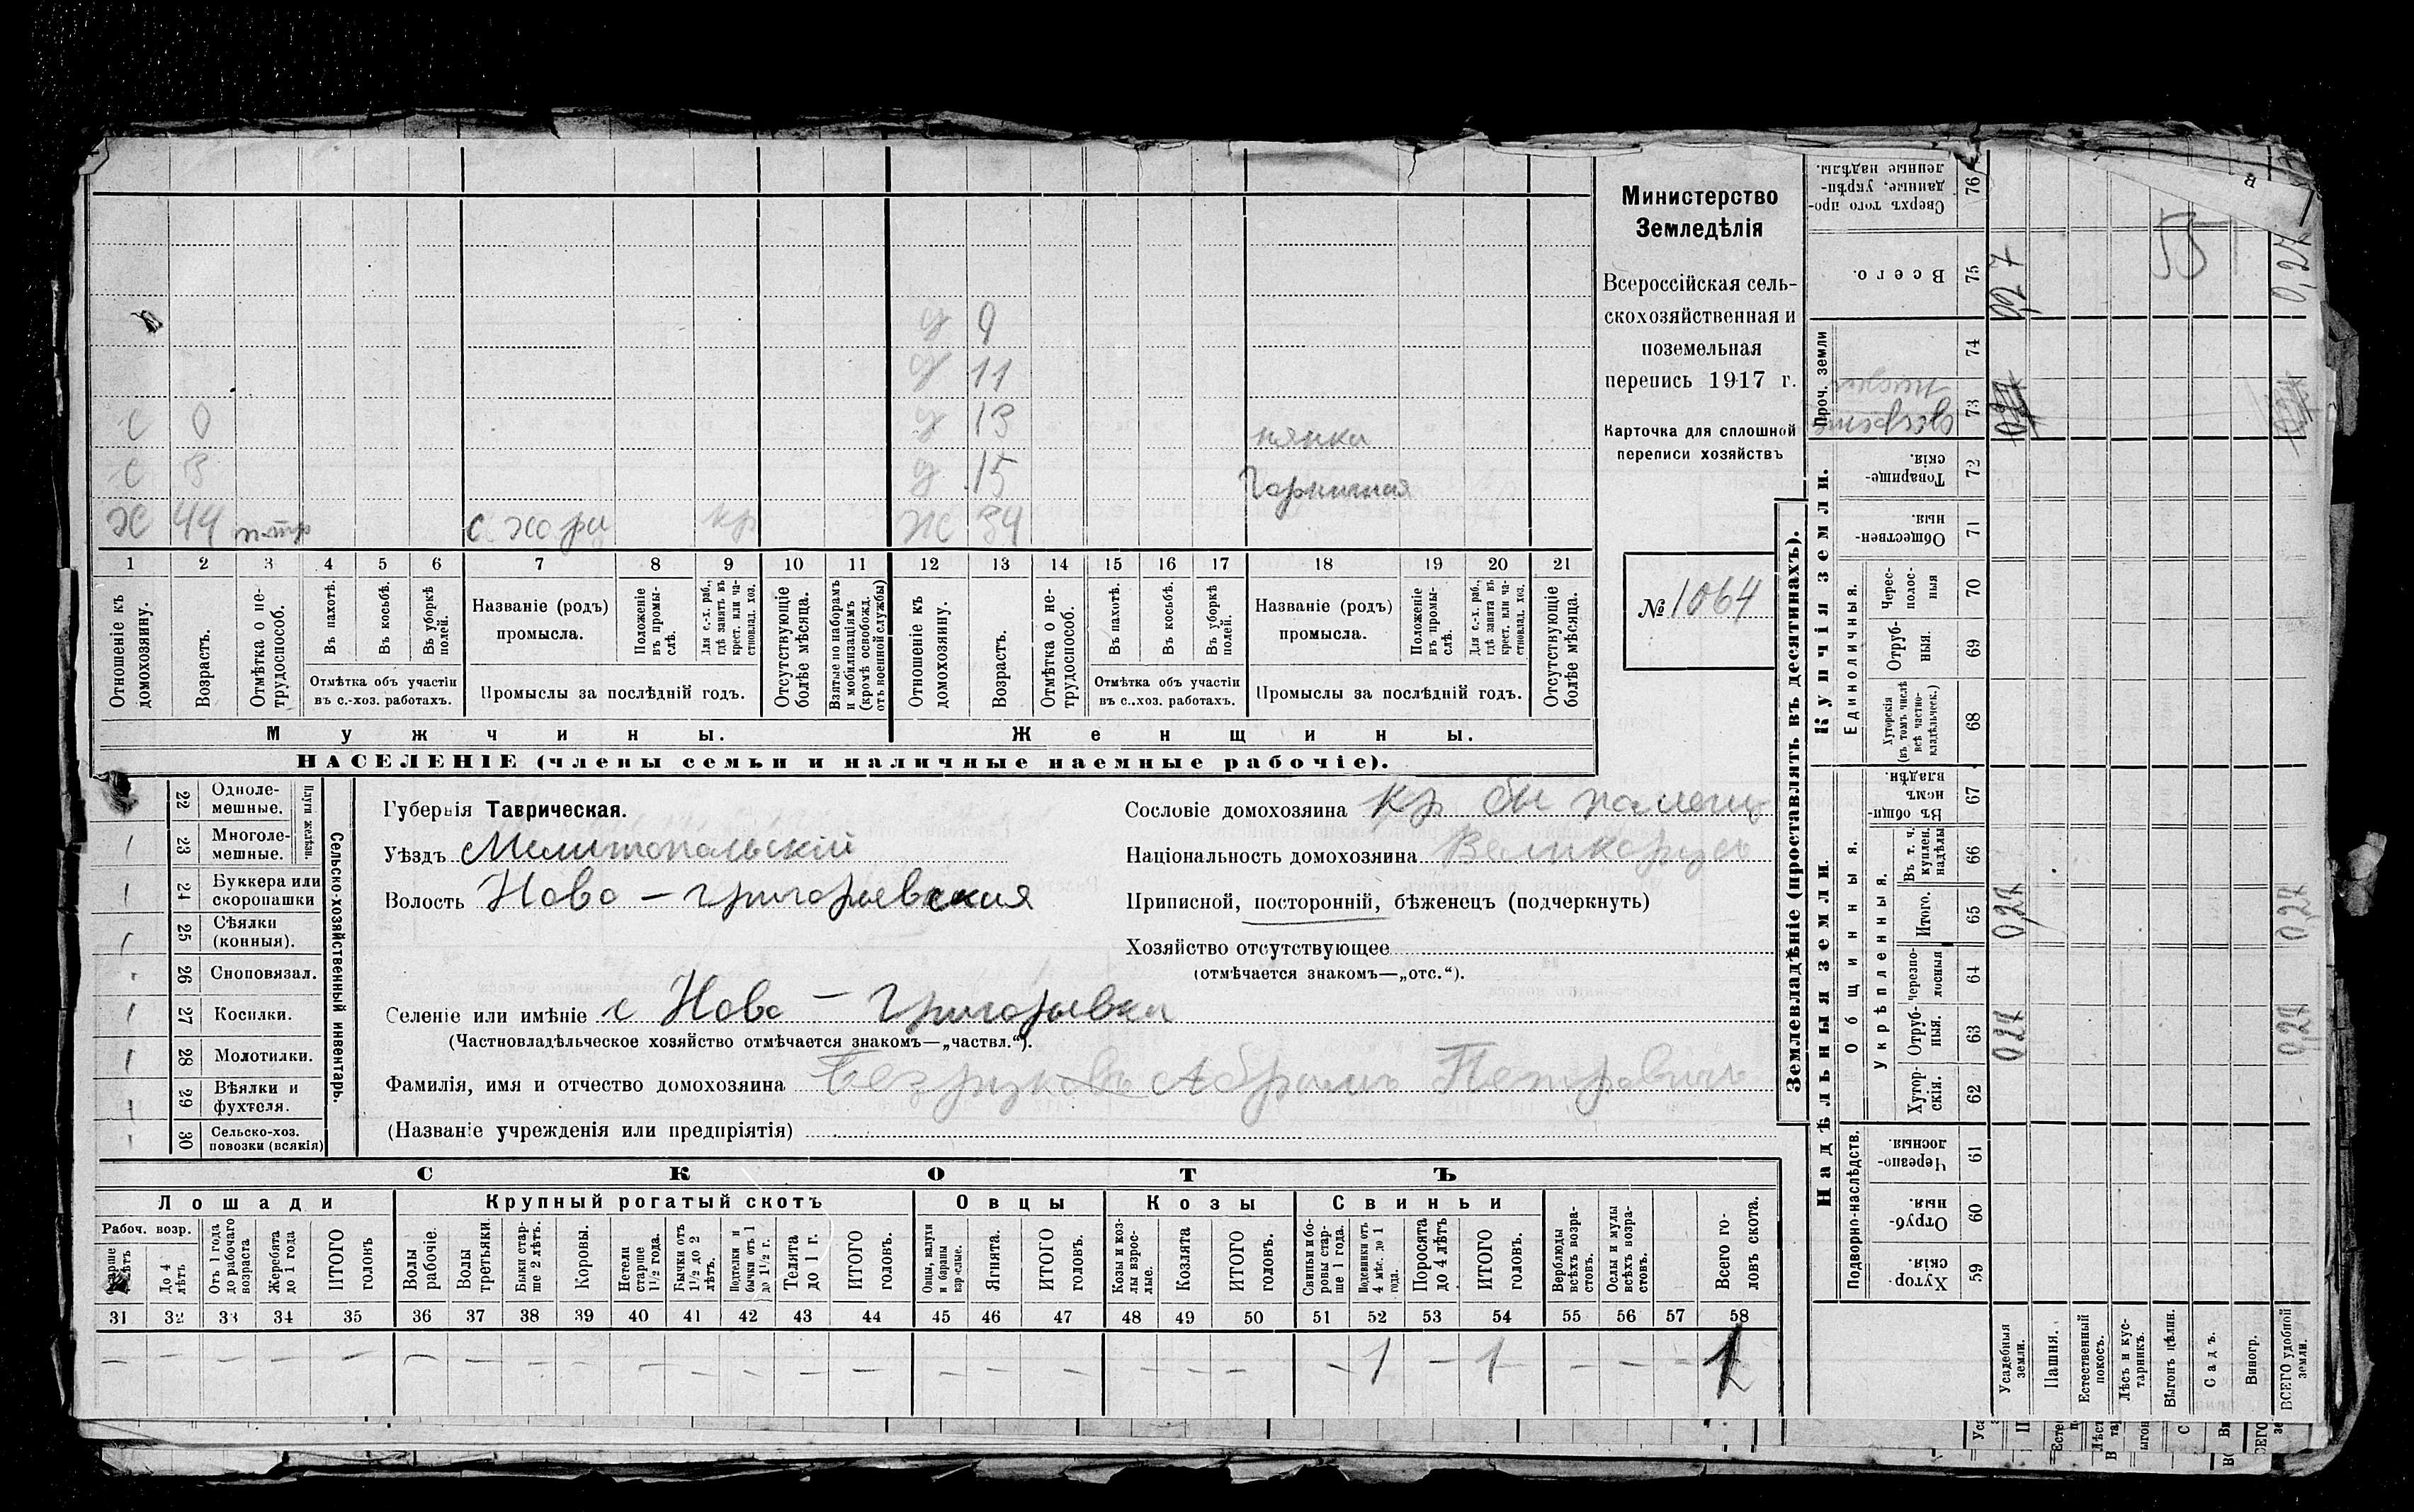 Министерство
Земледѣлія
Всероссійская сель-
скохозяйственная и
поземельная
перепись 1917 г.
Карточка для сплошной
переписи хозяйствъ
№ 1064
д 9
д 11
с 0 д 13 нянка
с 3 д 15 Горничная
Х 44 кр Ж 34
1 2 3 4 5 6 7 8 9 10 11 12 13 14 15 16 17 18 19 20 21
Отношеніе къ домохозяину.
Возрастъ.
Отмѣтка о не-трудоспособ.
Въ пахотѣ.
Въ косьбѣ.
Въ уборкѣ полей.
Названіе (родъ) промысла.
Положеніе въ промы-слѣ.
Для с.-х. раб., гдѣ занятъ въ крест. или ча-стновлад. хоз.
Отсутствующіе болѣе мѣсяца.
Взятые по наборамъ и мобилизаціямъ (кромѣ освобожд. отъ военной службы)
Отношеніе къ домохозяину.
Возрастъ.
Отмѣтка о не-трудоспособ.
Въ пахотѣ.
Въ косьбѣ.
Въ уборкѣ полей.
Названіе (родъ) промысла.
Положеніе въ промы-слѣ.
Для с.-х. раб., гдѣ занята въ крест. или ча-стновлад. хоз.
Отсутствующіе болѣе мѣсяца.
Отмѣтка объ участіи въ с.-хоз. работахъ.
Промыслы за послѣдній годъ.
Отмѣтка объ участіи въ с..хоз. работахъ.
Промыслы за послѣдній годъ.
Мужчины. Женщины.
НАСЕЛЕНІЕ (члены семьи и наличные наемные рабочіе).
Сельско-хозяйственный инвентарь.
Плуги желѣзн.
22 Одноле-мешные.
23 Многоле-мешные.
24 Буккера или скоропашки
25 Сѣялки (конныя).
26 Сноповязал.
27 Косилки.
28 Молотилки.
29 Вѣялки и фухтеля.
30 Сельско-хоз. повозки (всякія)
Губернія Таврическая.
Уѣздъ Мелитопольскій
Волость Ново - Григорьевская
Селеніе или имѣніе с Ново - Григорьевка
(Частновладѣльческое хозяйство отмѣчается знакомъ—„частвл.“).
Фамилія, имя и отчество домохозяина Безруковъ Абрамъ Петровичъ
(Названіе учрежденія или предпріятія)
Сословіе домохозяина кр бы помещ
Національность домохозяина Великоруссъ
Приписной, посторонній, бѣженецъ (подчеркнуть)
Хозяйство отсутствующее
(отмѣчается знакомъ—„отс.“).
СКОТЪ
Лошади Крупный рогатый скотъ Овцы Козы Свиньи
Рабоч. возр.
До 4 лѣтъ
Отъ 1 года до рабочаго возраста
Жеребята до 1 года
ИТОГО головъ
Волы рабочіе.
Волы третьяки.
Быки стар-ше 2 лѣтъ.
Коровы.
Нетели старше 1½ года.
Бычки отъ 1½ до 2 лѣтъ.
Подтелки и бычки отъ 1 до 1½ г.
Телята до 1 г.
ИТОГО головъ.
Овцы, валухи и бараны взрослые.
Ягнята.
ИТОГО головъ.
Козы и коз-лы взрос-лые.
Козлята
ИТОГО головъ.
Свиньи и бо-ровы стар-ше 1 года.
Подсвинки отъ 4 мѣс. до 1 года.
Поросята до 4 лѣтъ
ИТОГО головъ.
Верблюды всѣхъ возра-стовъ.
Ослы и мулы всѣхъ возра-стовъ.
Всего го-ловъ скота.
31 32 33 34 35 36 37 38 39 40 41 42 43 44 45 46 47 48 49 50 51 52 53 54 55 56 57 58
— — — — — — — — — — — — — — — — — — — — — 1 — 1 — — 1
Землевладѣніе (проставлять въ десятинахъ).
Надѣльныя земли. Купчія земли. Проч. земли
Подворно-наслѣдств. Общинныя. Укрѣпленныя. Единоличныя.
Хутор-скія. 59
Отруб-ныя. 60
Черезпо-лосныя. 61
Хутор-скія. 62
Отруб-ныя. 63
Черезпо-лосныя 64
Итого. 65
Въ т. ч. куплен. надѣлы 66
Въ общи-номъ владѣн. 67
Хуторскія (въ томъ числѣ всѣ частно-владѣльческ.) 68
Отруб-ныя. 69
Черес-полос-ныя 70
Обществен-ныя. 71
Товарище-скія. 72
73
74
Всего. 75
Сверхъ того про-данные, укрѣп-ленные надѣлы. 76
Усадебныя земли.
Пашня.
Естественный покосъ.
Лѣсъ и кус-тарникъ.
Выгонъ цѣлин.
Садъ.
Виногр.
ВСЕГО удобной земли.
0,27 0,27 0,27
0,27 0,27 0,27
55